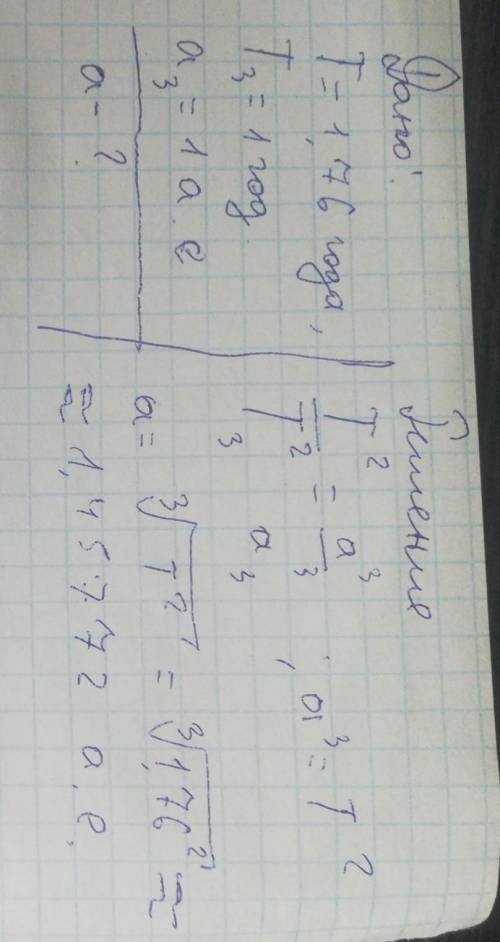 ① Дано:
T = 1,76 года,
T₃ = 1 год.
a₃ = 1 а.е
a - ?
Решение
T²/T₃² = a³/a₃³ ; a³ = T²
a = ∛T² = ∛1,76² ≈
≈ 1,45772 а.е.